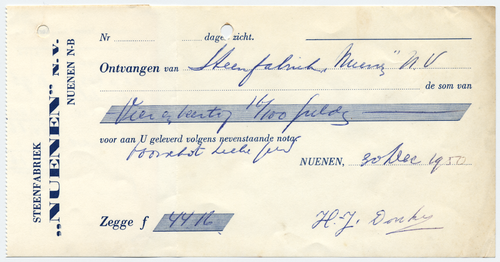 STEENFABRIEK
„NUENEN” N.V.
NUENEN N-B
Nr dage zicht.
Ontvangen van Steenfabriek „Nuenen” N.V
de som van
Vier en veertig 16/100 gulden
voor aan U geleverd volgens nevenstaande nota
voorschot
NUENEN, 30 Dec 1950
Zegge f 44.16
H. J.